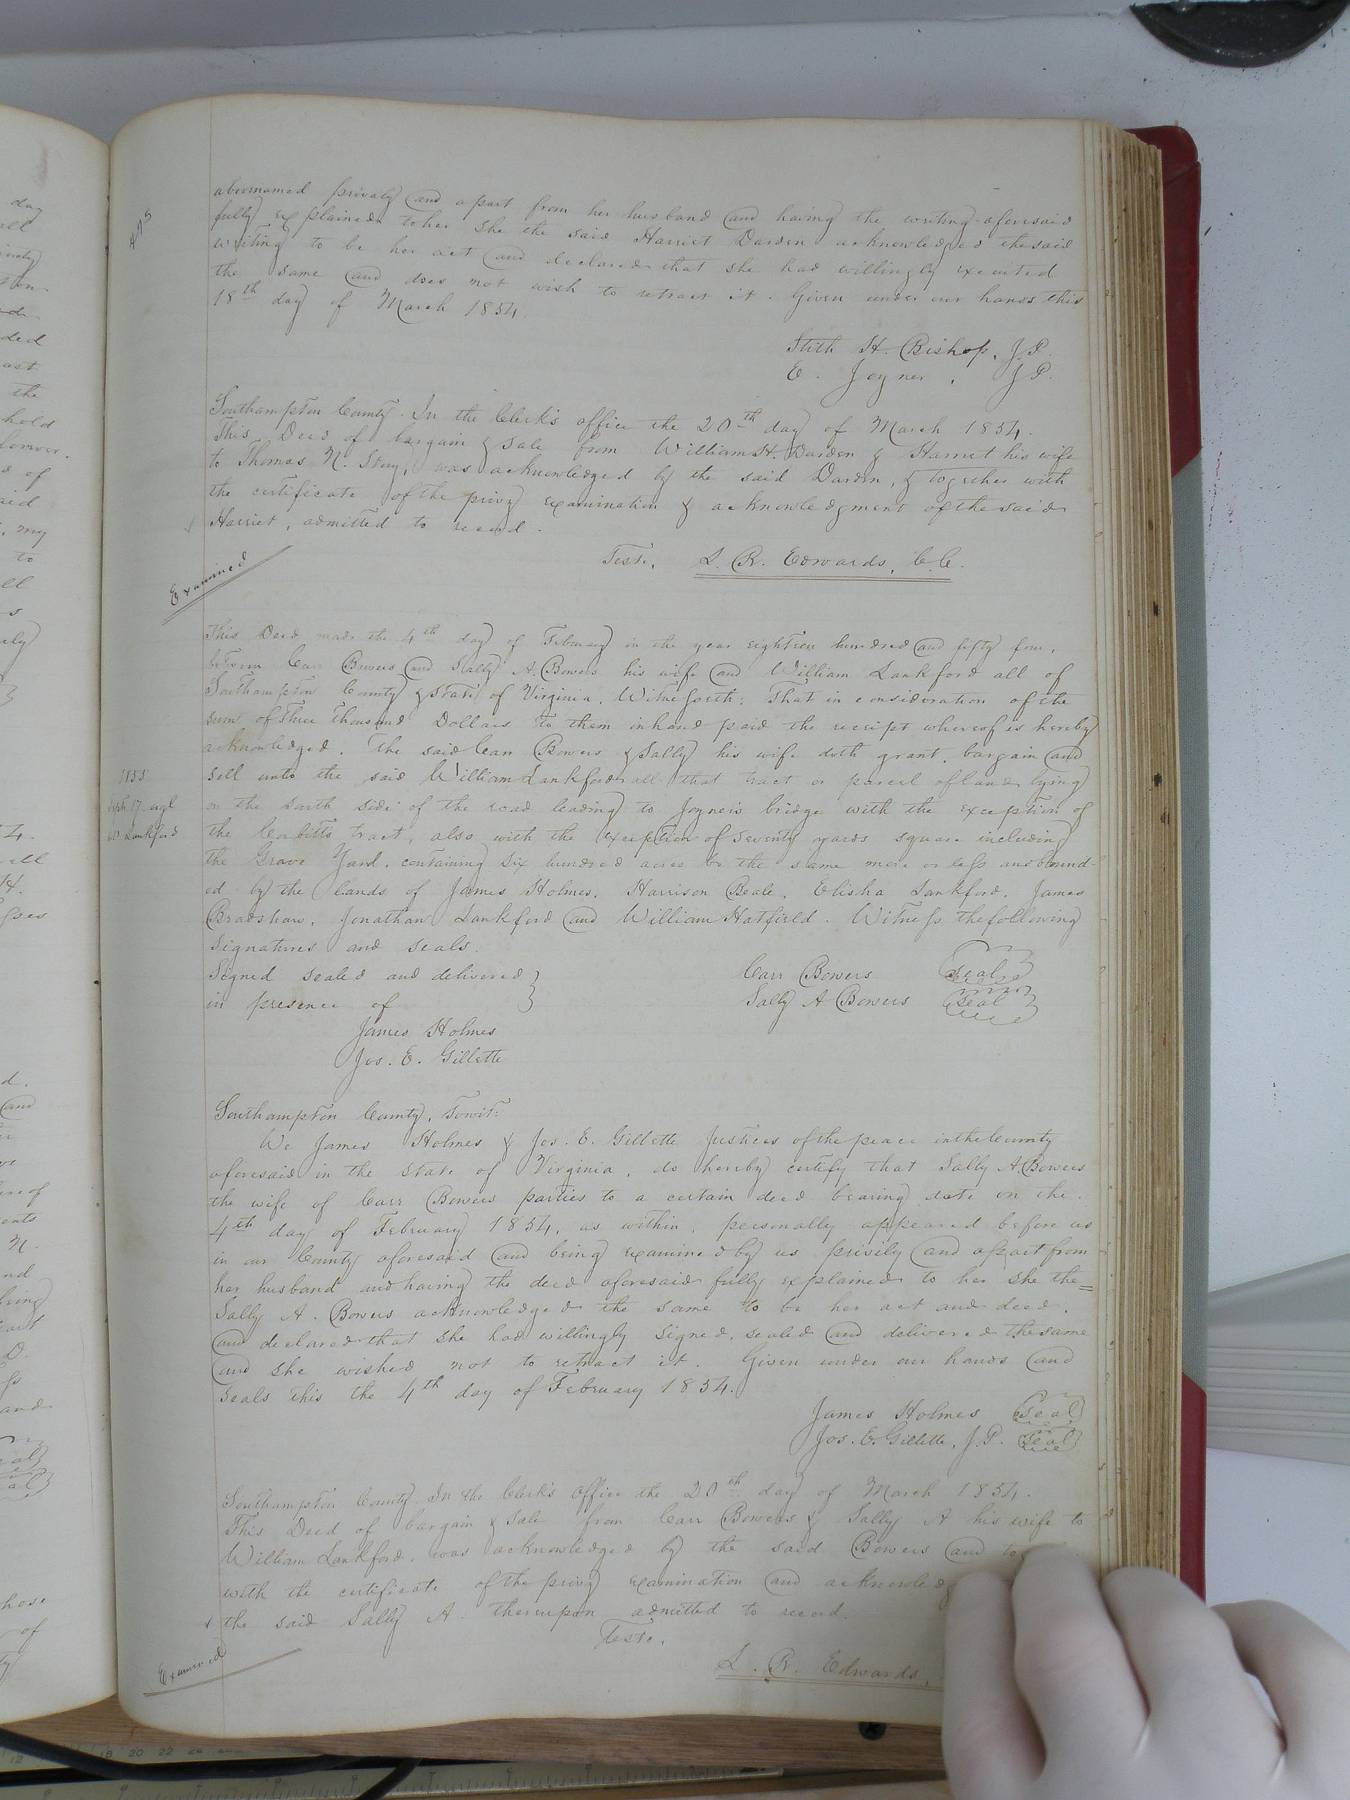 475
abovenamed privaly and apart from her husband and having the writing aforesaid
fully explained to her she the said Harriet Darden acknowledged the said
writing to be her act and declared that she had willingly executed
the same and does not wish to retract it. Given under our hands this
18th day of March 1854.
Stith H. Bishop, J.P.
E. Joyner, J.P.
Southampton County. In the Clerk's office the 20th day of March 1854.
This Deed of bargain & sale from William H. Darden & Harriet his wife
to Thomas N. was acknowledged by the said Darden, & together with
the certificate of the privy examination & acknowledgment of the said
Harriet, admitted to record.
Teste, L. R. Edwards, C.C.
Examined
This Deed made the 4th day of February in the year eighteen hundred and fifty four,
between Carr Bowers and Sally A. Bowers his wife and William Lankford all of
Southampton County & State of Virginia. Witnesseth: That in consideration of the
sum of Three Thousand Dollars to them in hand paid the receipt whereof is hereby
acknowledged. The said Carr Bowers & Sally his wife doth grant, bargain and
sell unto the said William Lankford all that tract or parcel of land lying
on the south side of the road leading to Joyner's bridge with the exception of
the tract, also with the exception of seventy yards square including
the Grave Yard, containing six hundred acres be the same more or less and bound-
ed by the lands of James Holmes, Harrison Beale, Elisha Lankford, James
Bradshaw, Jonathan Lankford and William Hatfield. Witness the following
signatures and seals.
1855
Sept 17
W. Lankford
Signed sealed and delivered
in presence of
James Holmes
Jos. E. Gillette
Carr Bowers Seal
Sally A Bowers Seal
Southampton County, Towit:
We James Holmes & Jos. E. Gillette Justices of the peace in the County
aforesaid in the State of Virginia, do hereby certify that Sally A Bowers
the wife of Carr Bowers parties to a certain deed bearing date on the
4th day of February 1854, as within, personally appeared before us
in our County aforesaid and being examined by us privily and apart from
her husband and having the deed aforesaid fully explained to her she the=
Sally A. Bowers acknowledged the same to be her act and deed,
and declared that she had willingly signed, sealed and delivered the same
and she wished not to retract it. Given under our hands and
seals this the 4th day of February 1854.
James Holmes Seal
Jos. E. Gillette, J.P. Seal
Southampton County. In the Clerk's Office the 20th day of March 1854.
This Deed of bargain & sale from Carr Bowers & Sally A his wife to
William Lankford, was acknowledged by the said Bowers and to
with the certificate of the privy examination and acknowledg
the said Sally A. thereupon admitted to record.
Teste,
L. R. Edwards,
Examined